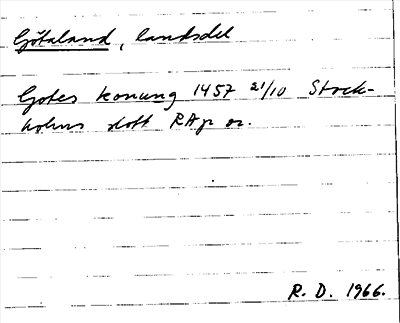 Götaland, landsdel
Gotes konung 1457 21/10 Stock-
holms slott RAp or.
R. D. 1966.